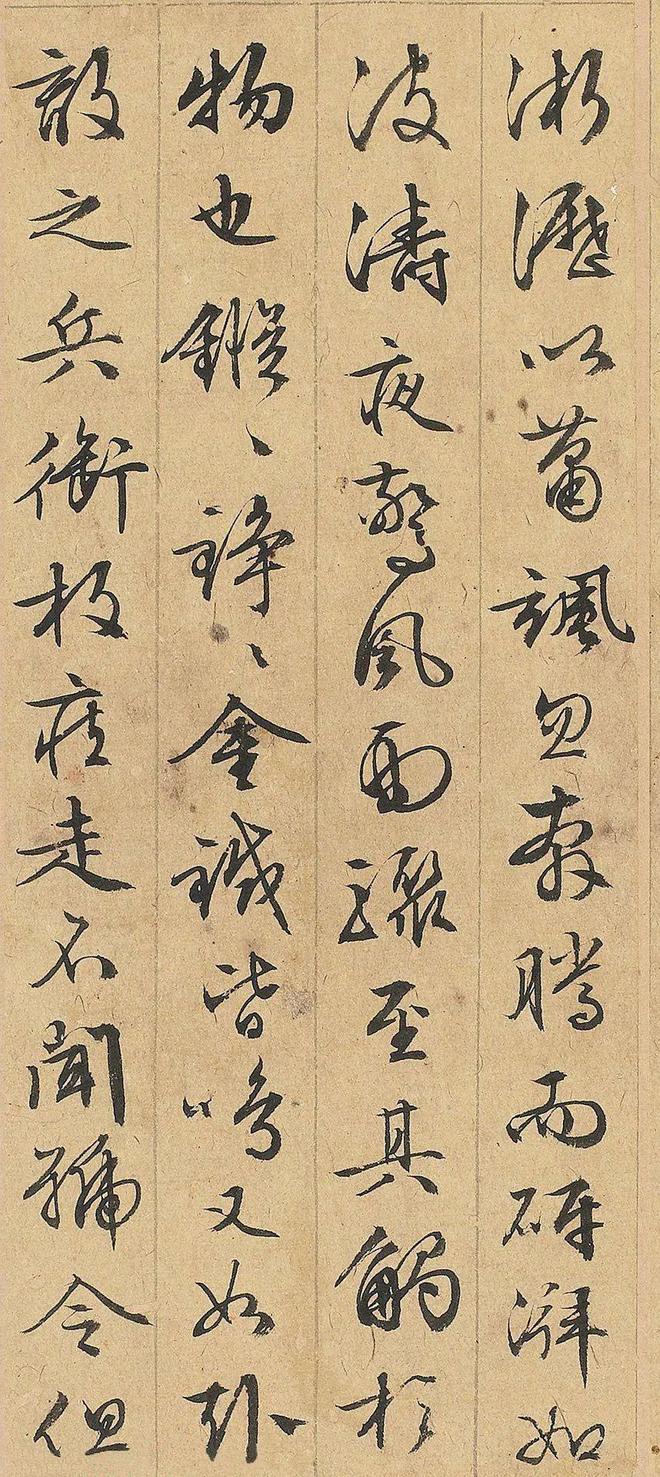 淅瀝以蕭颯忽奔騰而砰湃如
波濤夜驚風雨驟至其觸於
物也鏦〻錚〻金鐵皆鳴又如赴
敵之兵銜枚疾走不聞號令但